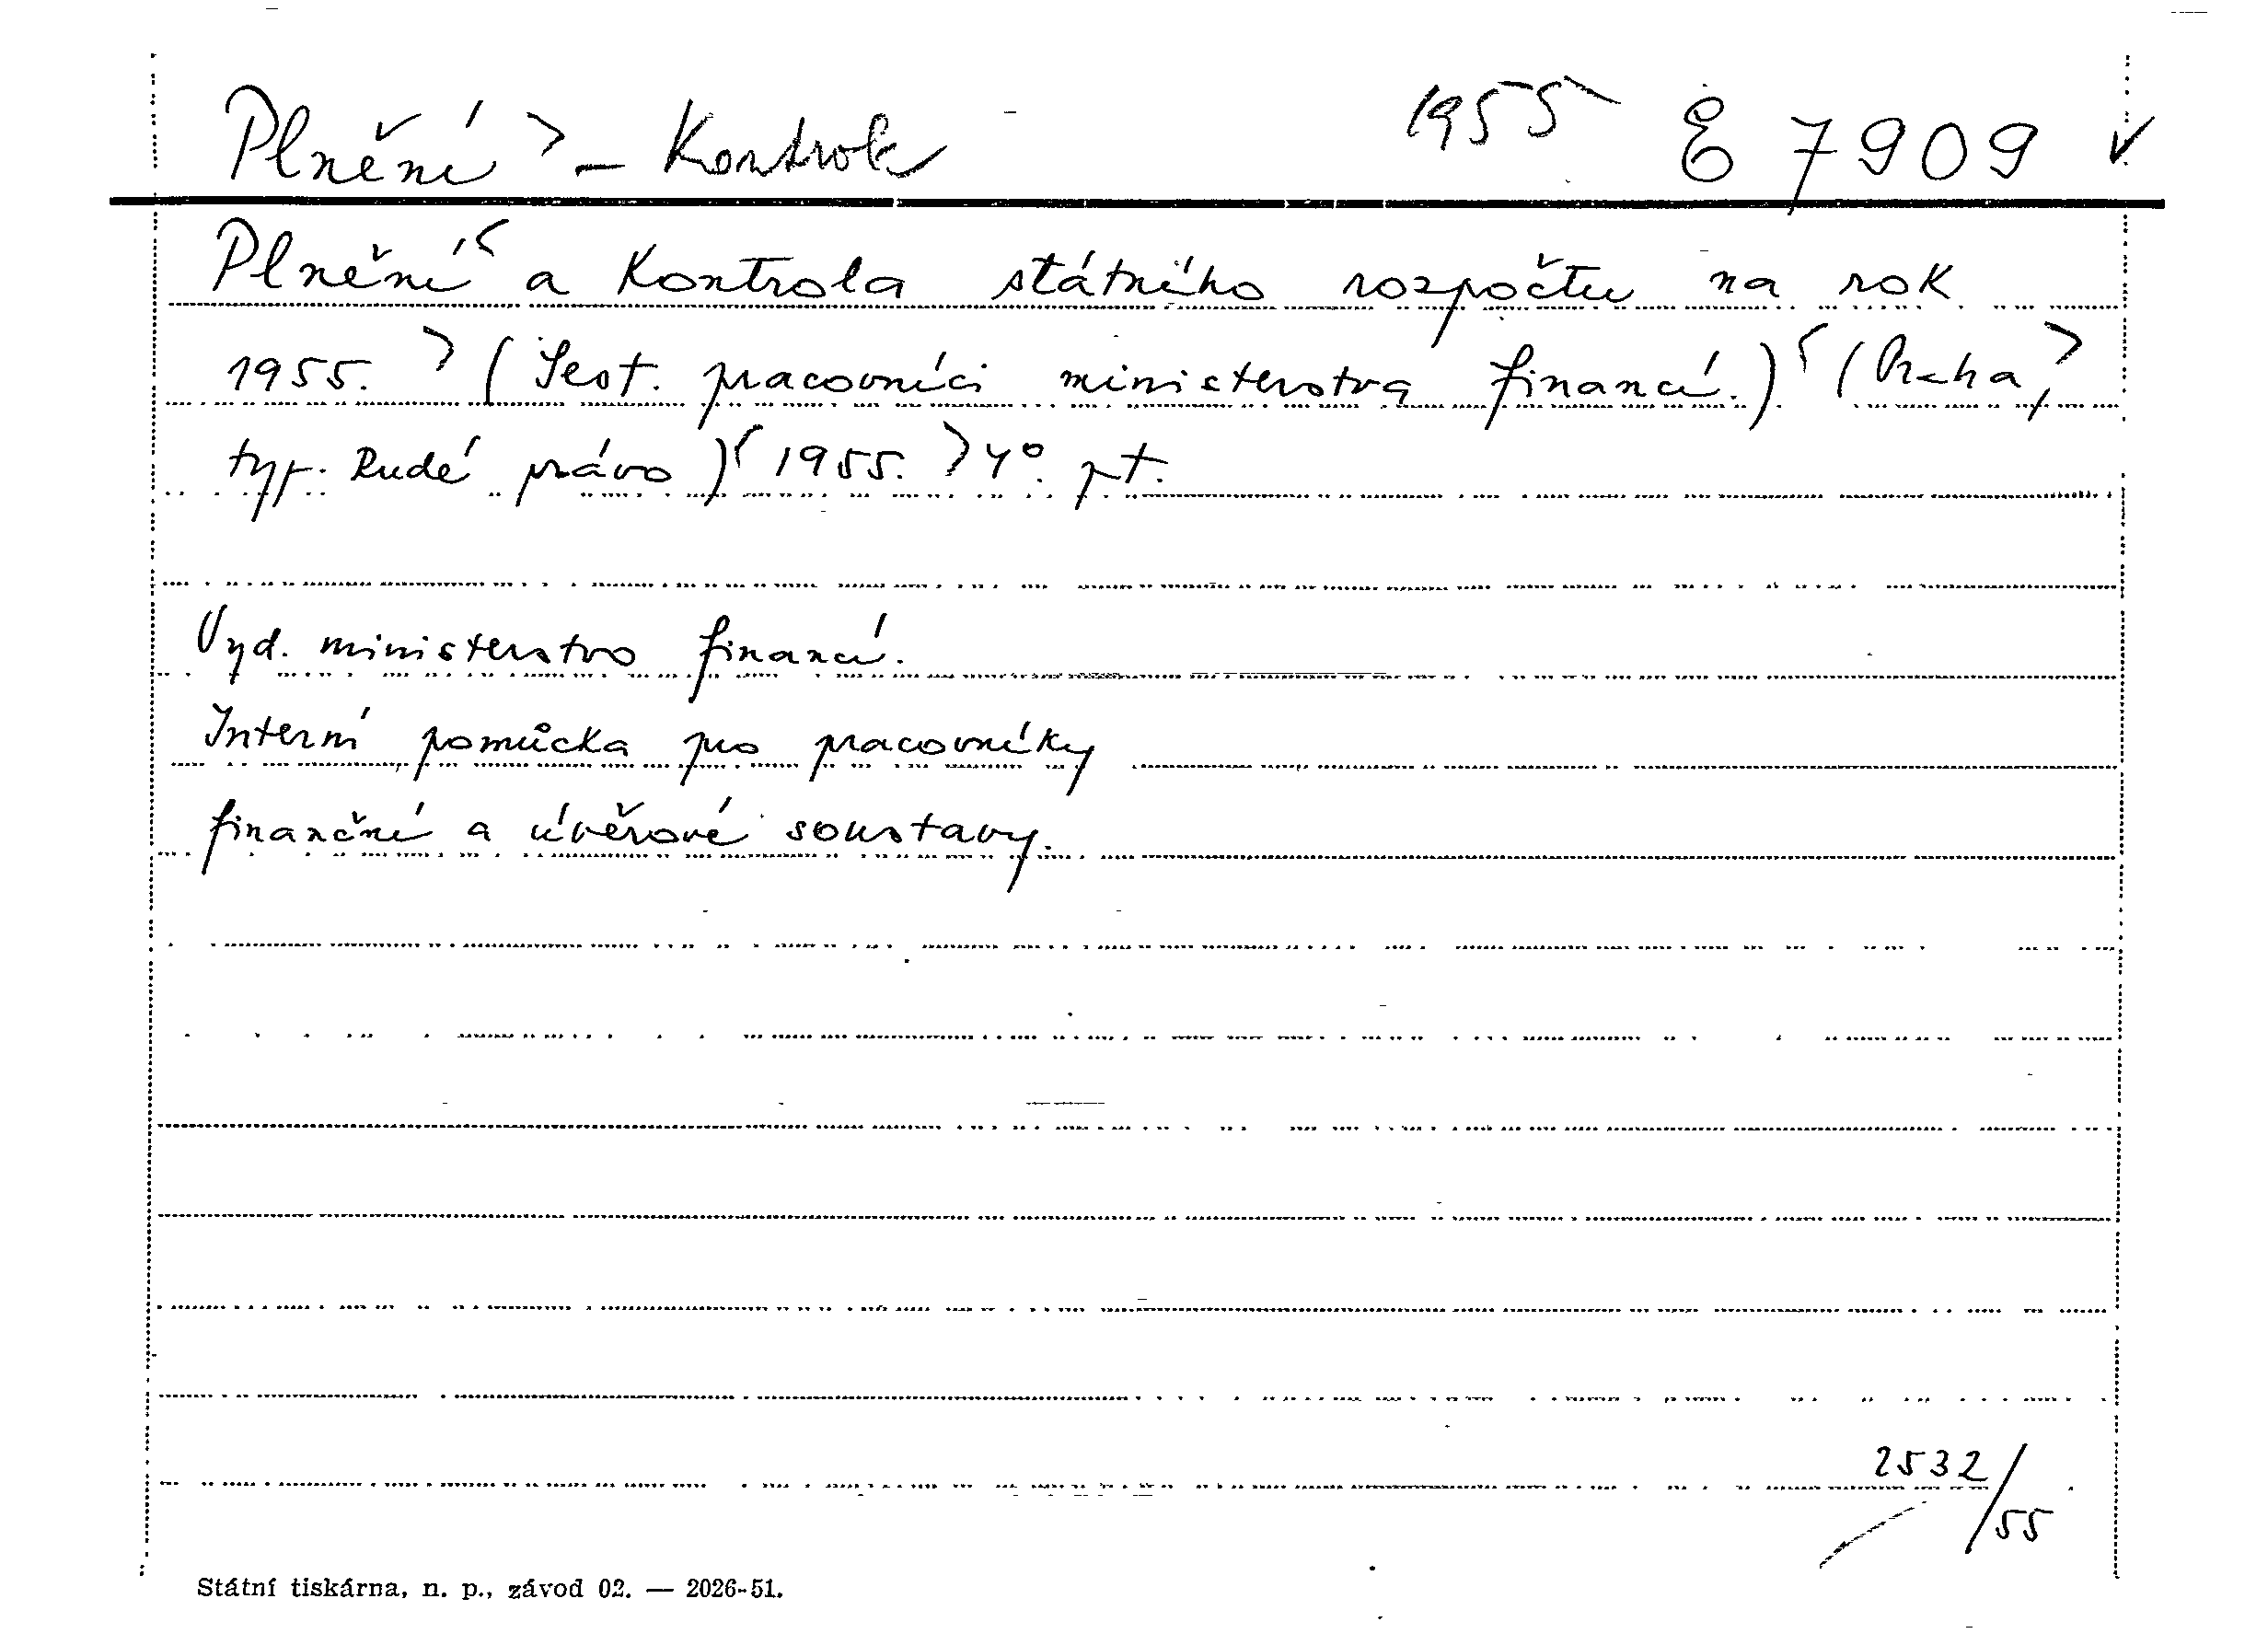 Plnění > – Kontrola 1955 E 7909 ✓
Plnění < a Kontrola státního rozpočtu na rok
1955. > (Sest. pracovníci ministerstva financí.) < (Praha, >
typ. Rudé právo) < 1955. > 4°. pt.
Vyd. ministerstvo financí.
Interní pomůcka pro pracovníky
finanční a úvěrové soustavy.
2532/55
Státní tiskárna, n. p., závod 02. — 2026-51.